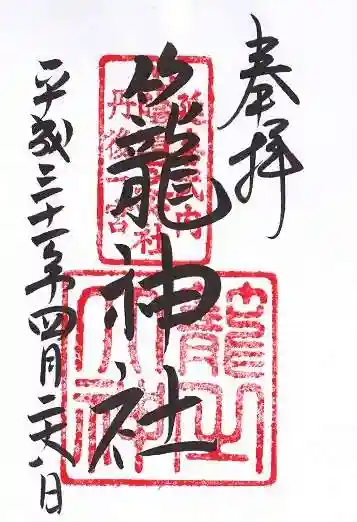 奉拝
籠神社
平成三十一年四月二十八日
延喜式内
丹後一宮
籠之
大神